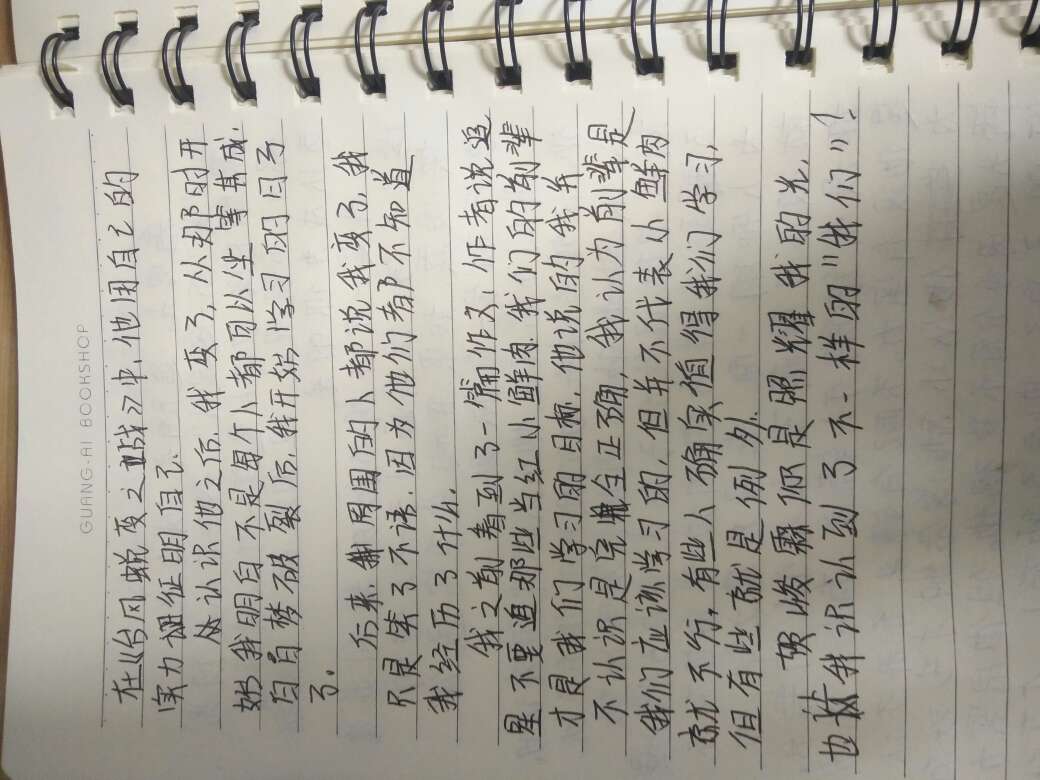 GUANG.AI BOOKSHOP
在《台风蜕变之战》中,他用自己的
实力证明自己.
从认识他之后,我变了,从那时开
始我明白不是每个人都可以坐等其成.
白日梦破裂后,我开始学习的日子
了.
后来,周围的人都说我变了,我
只是笑了不语.因为他们都不知道
我经历了什么.
我之前看到了一篇作文,作者说追
星不要追那些当红小鲜肉.我们的前辈
才是我们学习的目标,他说的我并
不认识是完全正确,我认为前辈是
我们应该学习的,但并不代表小鲜肉
就不行,有些人确实值得我们学习,
但有些就是例外.
贺峻霖你是照耀我的光,
也教我识认到了不一样的"我们"!